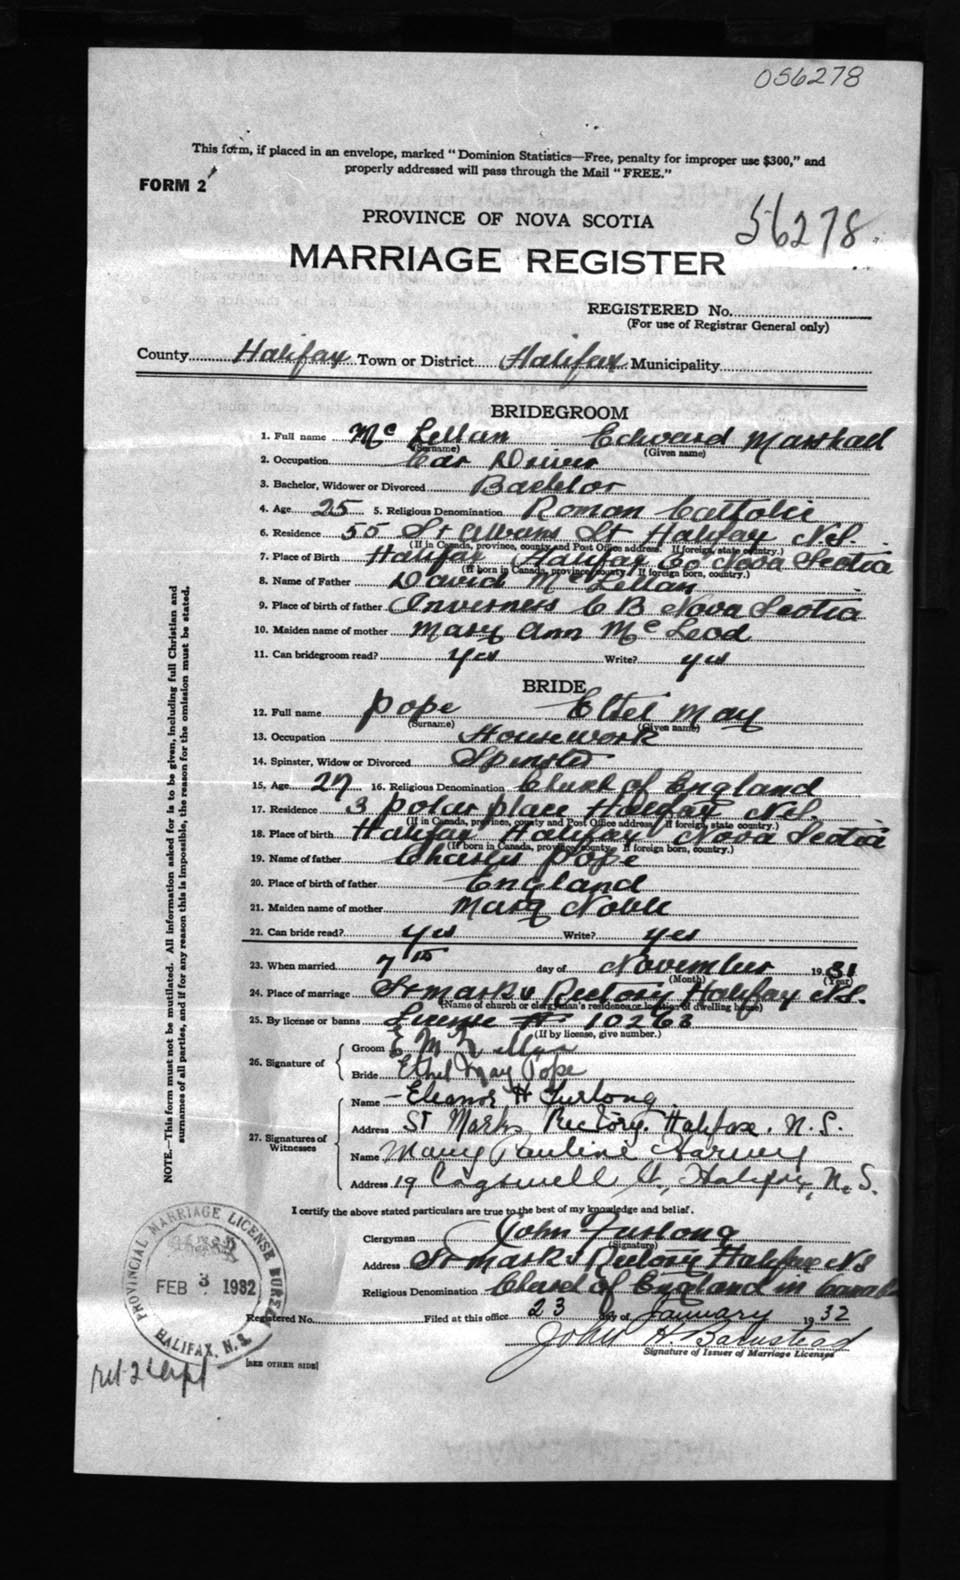 056278
This form, if placed in an envelope, marked "Dominion Statistics—Free, penalty for improper use $300," and
properly addressed will pass through the Mail "FREE."
FORM 2
56278
PROVINCE OF NOVA SCOTIA
MARRIAGE REGISTER
REGISTERED No.
(For use of Registrar General only)
County Halifax Town or District Halifax Municipality
BRIDEGROOM
1. Full name Mc Lellan Edward Marshall
(Surname) (Given name)
2. Occupation Car Driver
3. Bachelor, Widower or Divorced Bachelor
4. Age 25 5. Religious Denomination Roman Catholic
6. Residence 55 St Albans St Halifax N.S.
(If in Canada, province, county and Post Office address. If foreign, state country.)
7. Place of Birth Halifax Halifax Co Nova Scotia
(If born in Canada, province, county. If foreign born, country.)
8. Name of Father David McLellan
9. Place of birth of father Inverness C B Nova Scotia
10. Maiden name of mother Mary Ann McLeod
11. Can bridegroom read? yes Write? yes
BRIDE
12. Full name Pope Ethel May
(Surname) (Given name)
13. Occupation Housework
14. Spinster, Widow or Divorced Spinster
15. Age 27 16. Religious Denomination Church of England
17. Residence 3 Polar place Halifax N.S.
(If in Canada, province, county and Post Office address. If foreign, state country.)
18. Place of birth Halifax Halifax Nova Scotia
(If born in Canada, province, county. If foreign born, country.)
19. Name of father Charles Pope
20. Place of birth of father England
21. Maiden name of mother Mary Noble
22. Can bride read? yes Write? yes
23. When married 7th day of November 1931
(Month) (Year)
24. Place of marriage St Marks Rectory Halifax N.S.
(Name of church or clergyman's residence or location of dwelling house)
25. By license or banns License # 10266
(If by license, give number.)
26. Signature of
Groom E M Lellan
Bride Ethel May Pope
27. Signatures of Witnesses
Name Eleanor H Furlong
Address St Marks Rectory, Halifax, N.S.
Name Mary Pauline Harvey
Address 19 Cogswell St., Halifax, N.S.
I certify the above stated particulars are true to the best of my knowledge and belief.
Clergyman John Furlong
(Signature)
Address St Marks Rectory Halifax NS
Religious Denomination Church of England in Canada
Registered No. Filed at this office 23 day of January 1932
John H. Barnstead
Signature of Issuer of Marriage Licenses
[SEE OTHER SIDE]
NOTE.—This form must not be mutilated. All information asked for is to be given, including full Christian and
surnames of all parties, and if for any reason this is impossible, the reason for the omission must be stated.
PROVINCIAL MARRIAGE LICENSE BUREAU
FEB 3 1932
HALIFAX, N.S.